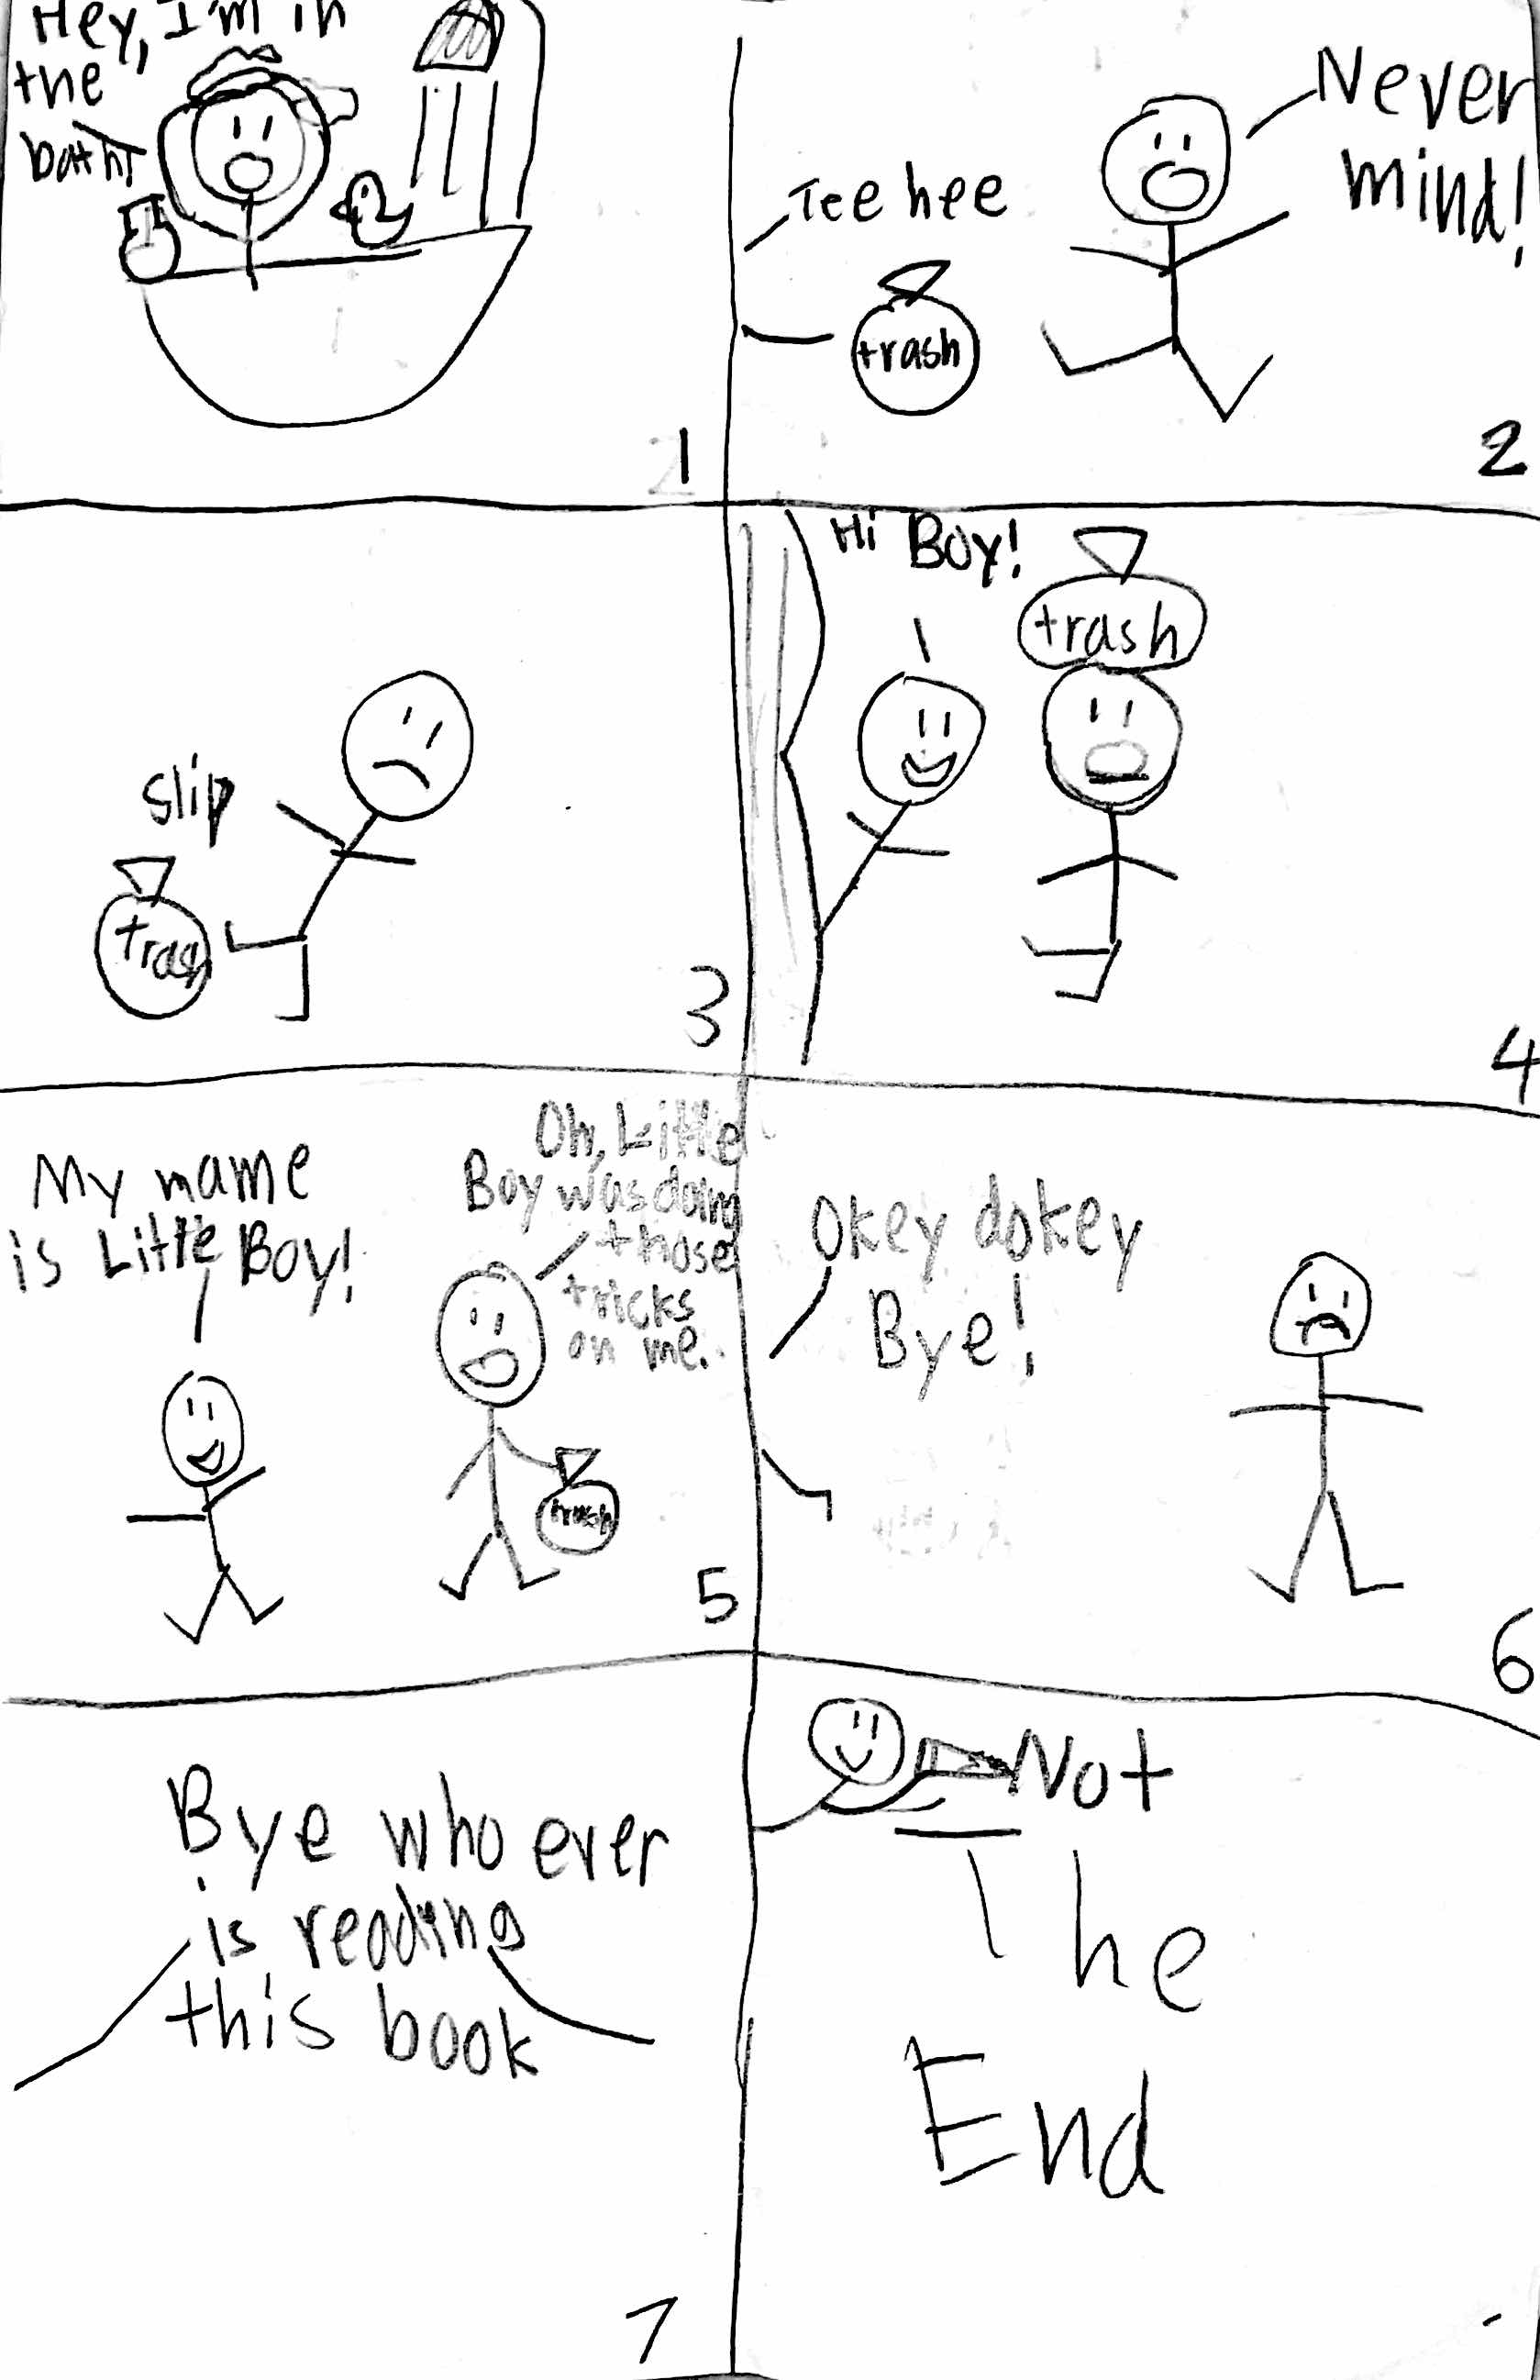 Hey, I'm in
the
bath!
1
Tee hee
Never
mind!
trash
2
slip
trash
3
Hi Boy!
trash
4
My name
is Little Boy!
Oh, Little
Boy was doing
those
tricks
on me.
trash
5
Okey dokey
Bye!
6
Bye who ever
is reading
this book
7
Not
The
End